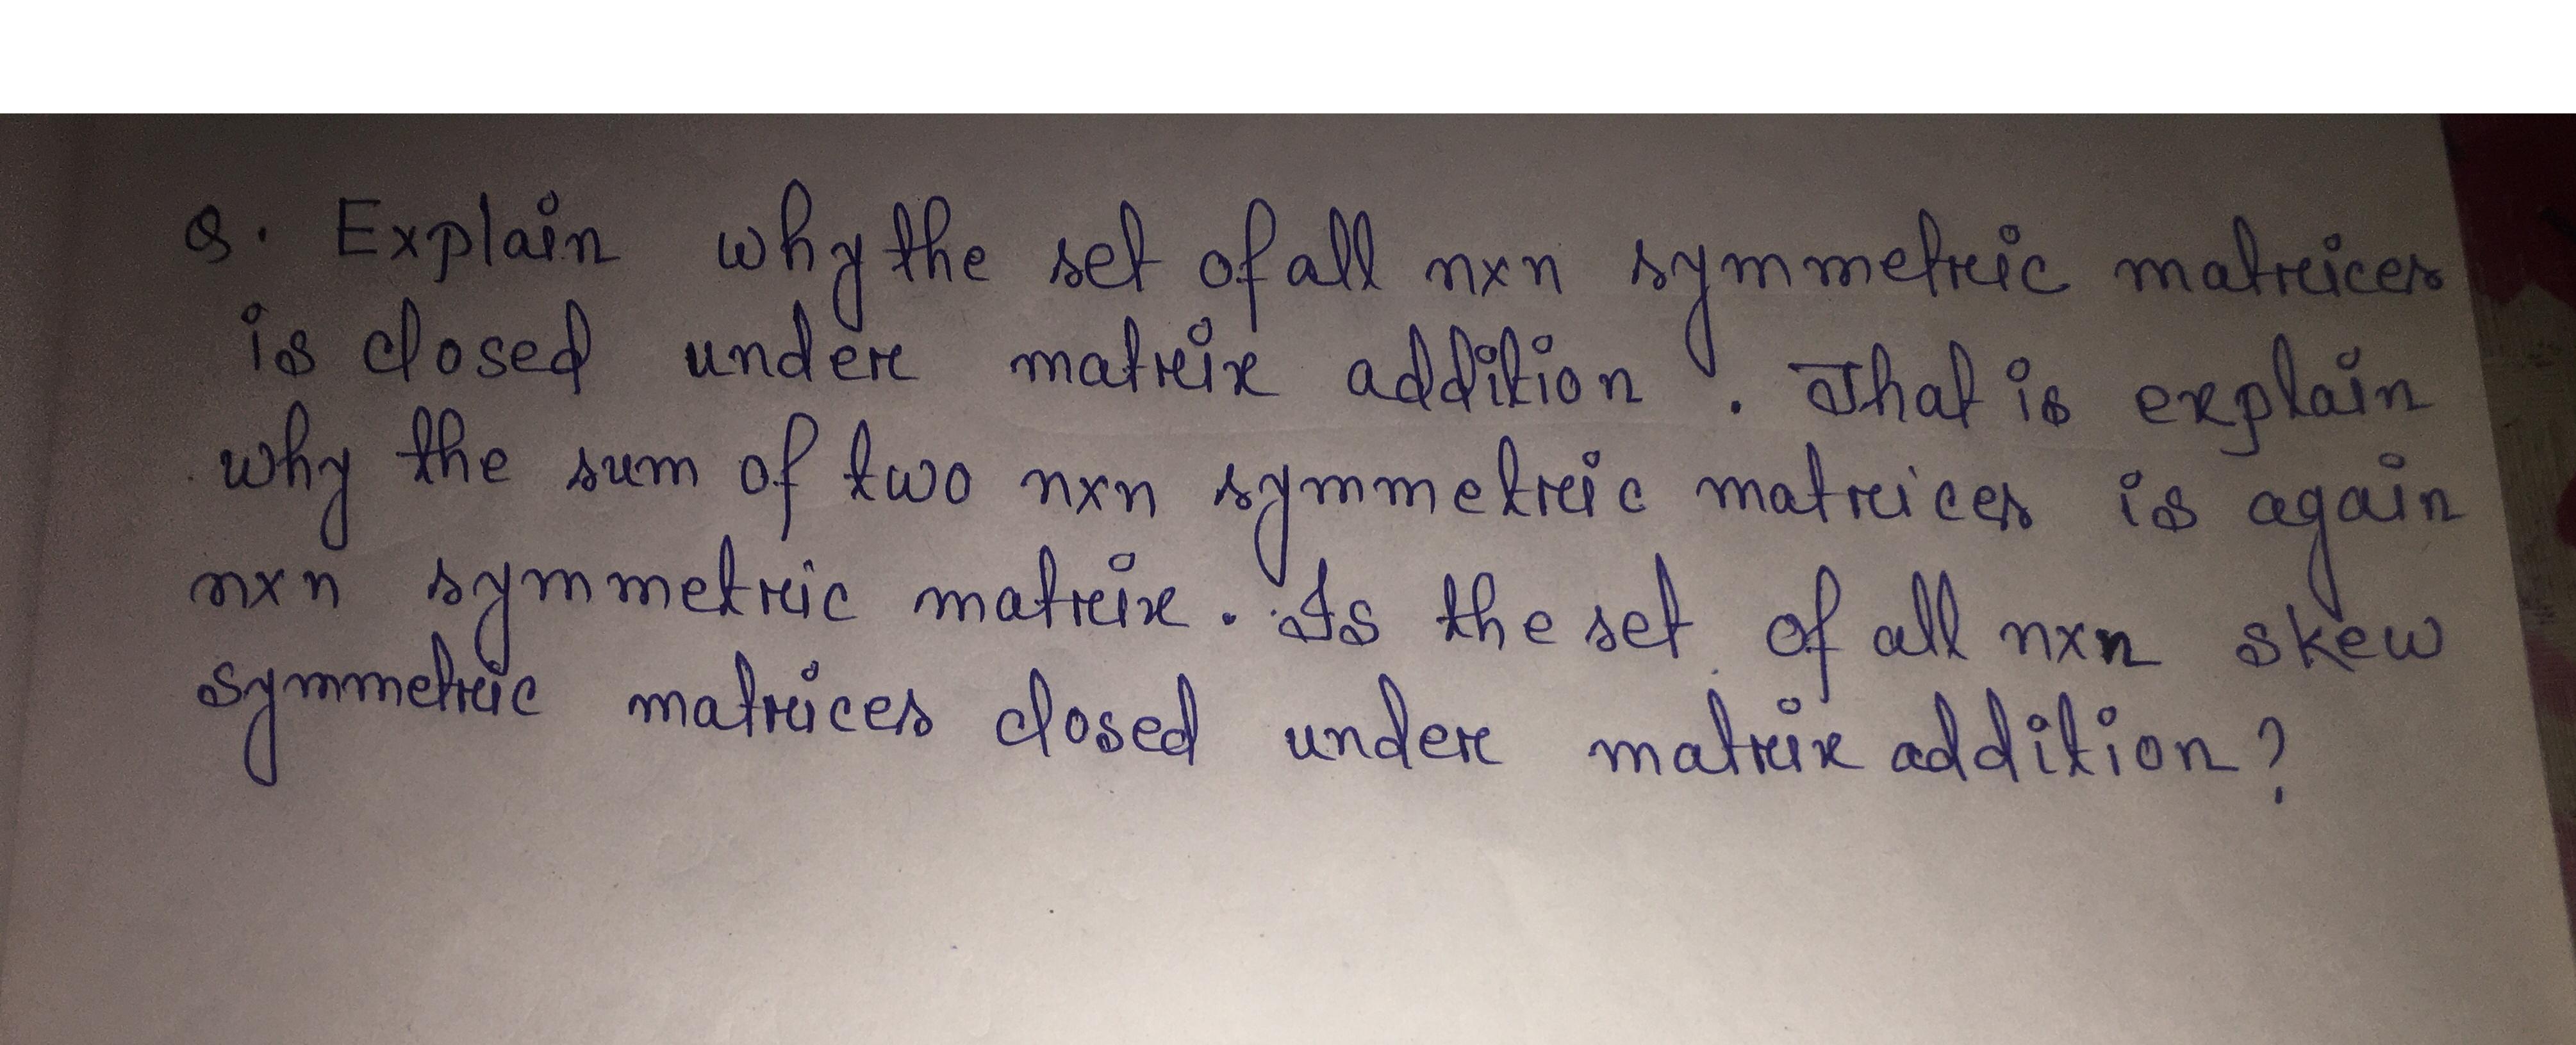 Q. Explain why the set of all nxn symmetric matrices
is closed under matrix addition. That is explain
why the sum of two nxn symmetric matrices is again
nxn symmetric matrix. Is the set of all nxn skew
symmetric matrices closed under matrix addition?